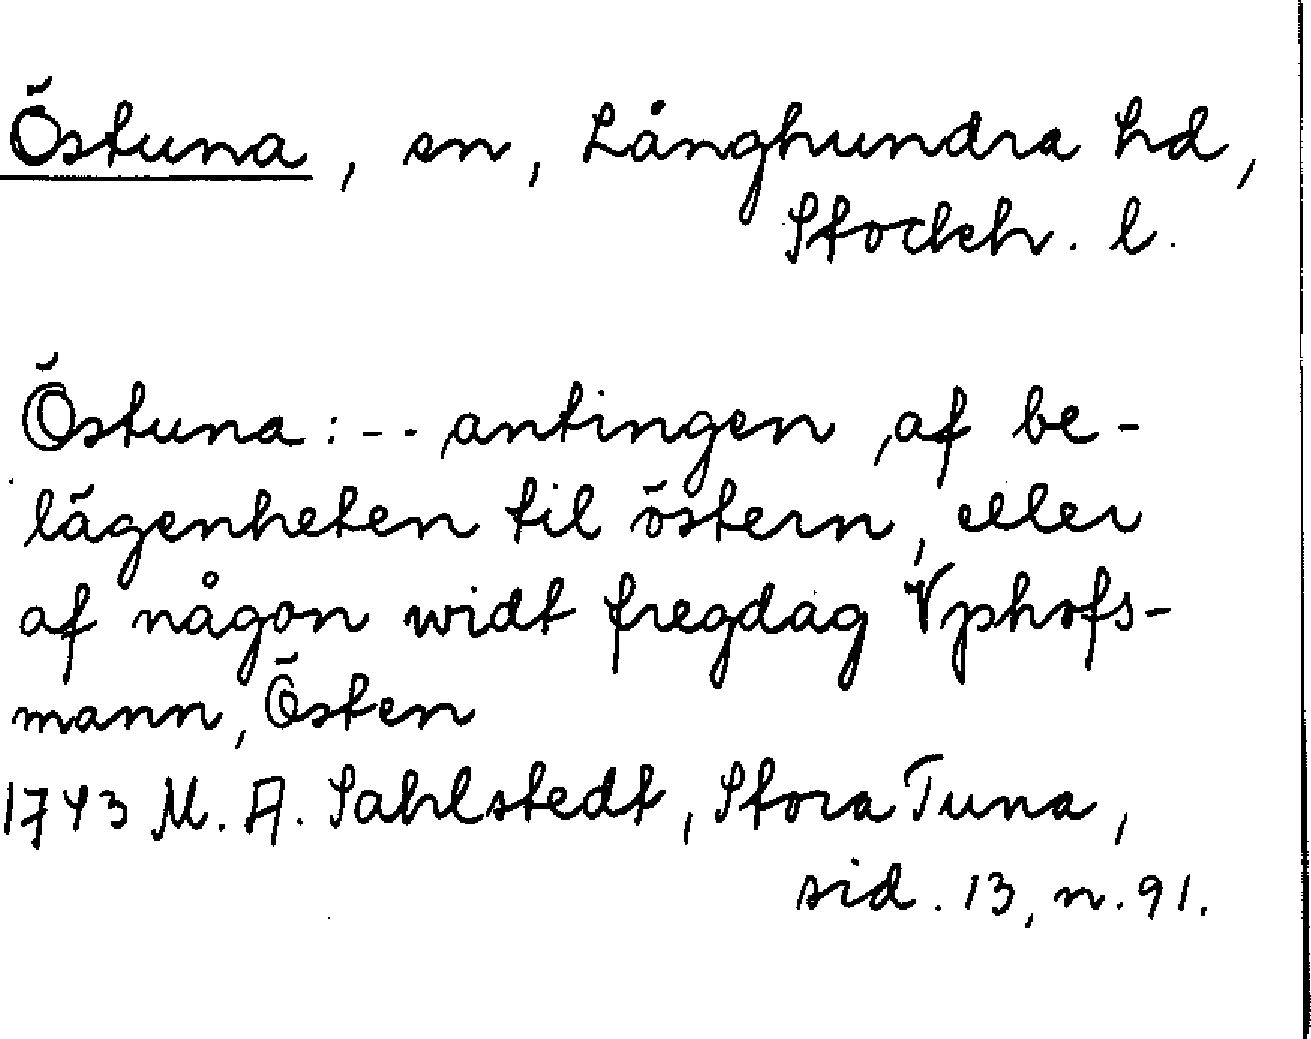 Östuna, sn, Långhundra hd,
Stockh. l.
Östuna: -- antingen, af be-
lägenheten til östern, eller
af någon widt fregdag Vphofs-
mann, Östen
1743 M. A. Sahlstedt, Stora Tuna,
sid. 13, n. 91.